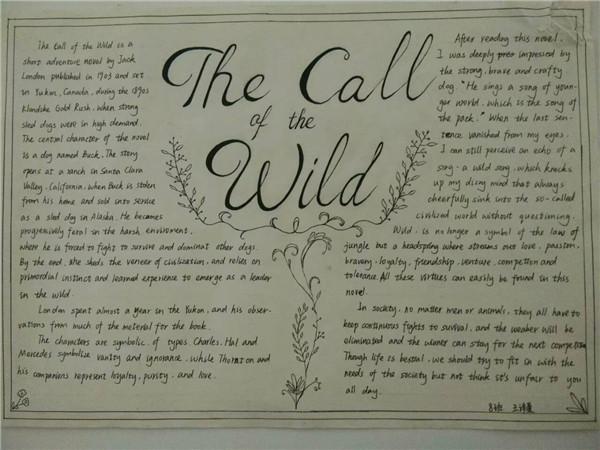 The Call
of the
Wild
The Call of the Wild is a
short adventure novel by Jack
London published in 1903 and set
in Yukon, Canada, during the 1890s
Klondike Gold Rush, when strong
sled dogs were in high demand.
The central character of the novel
is a dog named Buck. The story
opens at a ranch in Santa Clara
Valley, California, when Buck is stolen
from his home and sold into service
as a sled dog in Alaska. He becomes
progressively feral in the harsh enviroment,
where he is forced to fight to survive and dominat other dogs.
By the end, she sheds the veneer of civilization, and relies on
primordial instinct and learned experience to emerge as a leader
in the wild.
London spent almost a year in the Yukon, and his obser-
vations from much of the meterial for the book.
The characters are symbolic of types. Charles, Hal and
Mercedes symbolize vanity and ignorance, while Thornton and
his companions represent loyalty, purity, and love.
After reading this novel,
I was deeply impressed by
the strong, brave and crafty
dog. "He sings a song of youn-
ger world, which is the song of
the pack." When the last sen-
tence vanished from my eyes.
I can still perceive an echo of a
song - a wild song, which knocks
up my dicing mind that always
cheerfully sink into the so-called
civilized world without questioning.
Wild, is no longer a symbol of the laws of
jungle but a headspring where streams out love, passion,
bravery, loyalty, friendship, venture, competion and
tolerance. All these virtues can easily be found in this
novel.
In society, no matter men or animals, they all have to
keep continuous fights to survival, and the weaker will be
eliminated and the winner can stay for the next competition
Though life is bestial, we should try to fit in with the
needs of the society but not think it's unfair to you
all day.
8班 王诗蔓